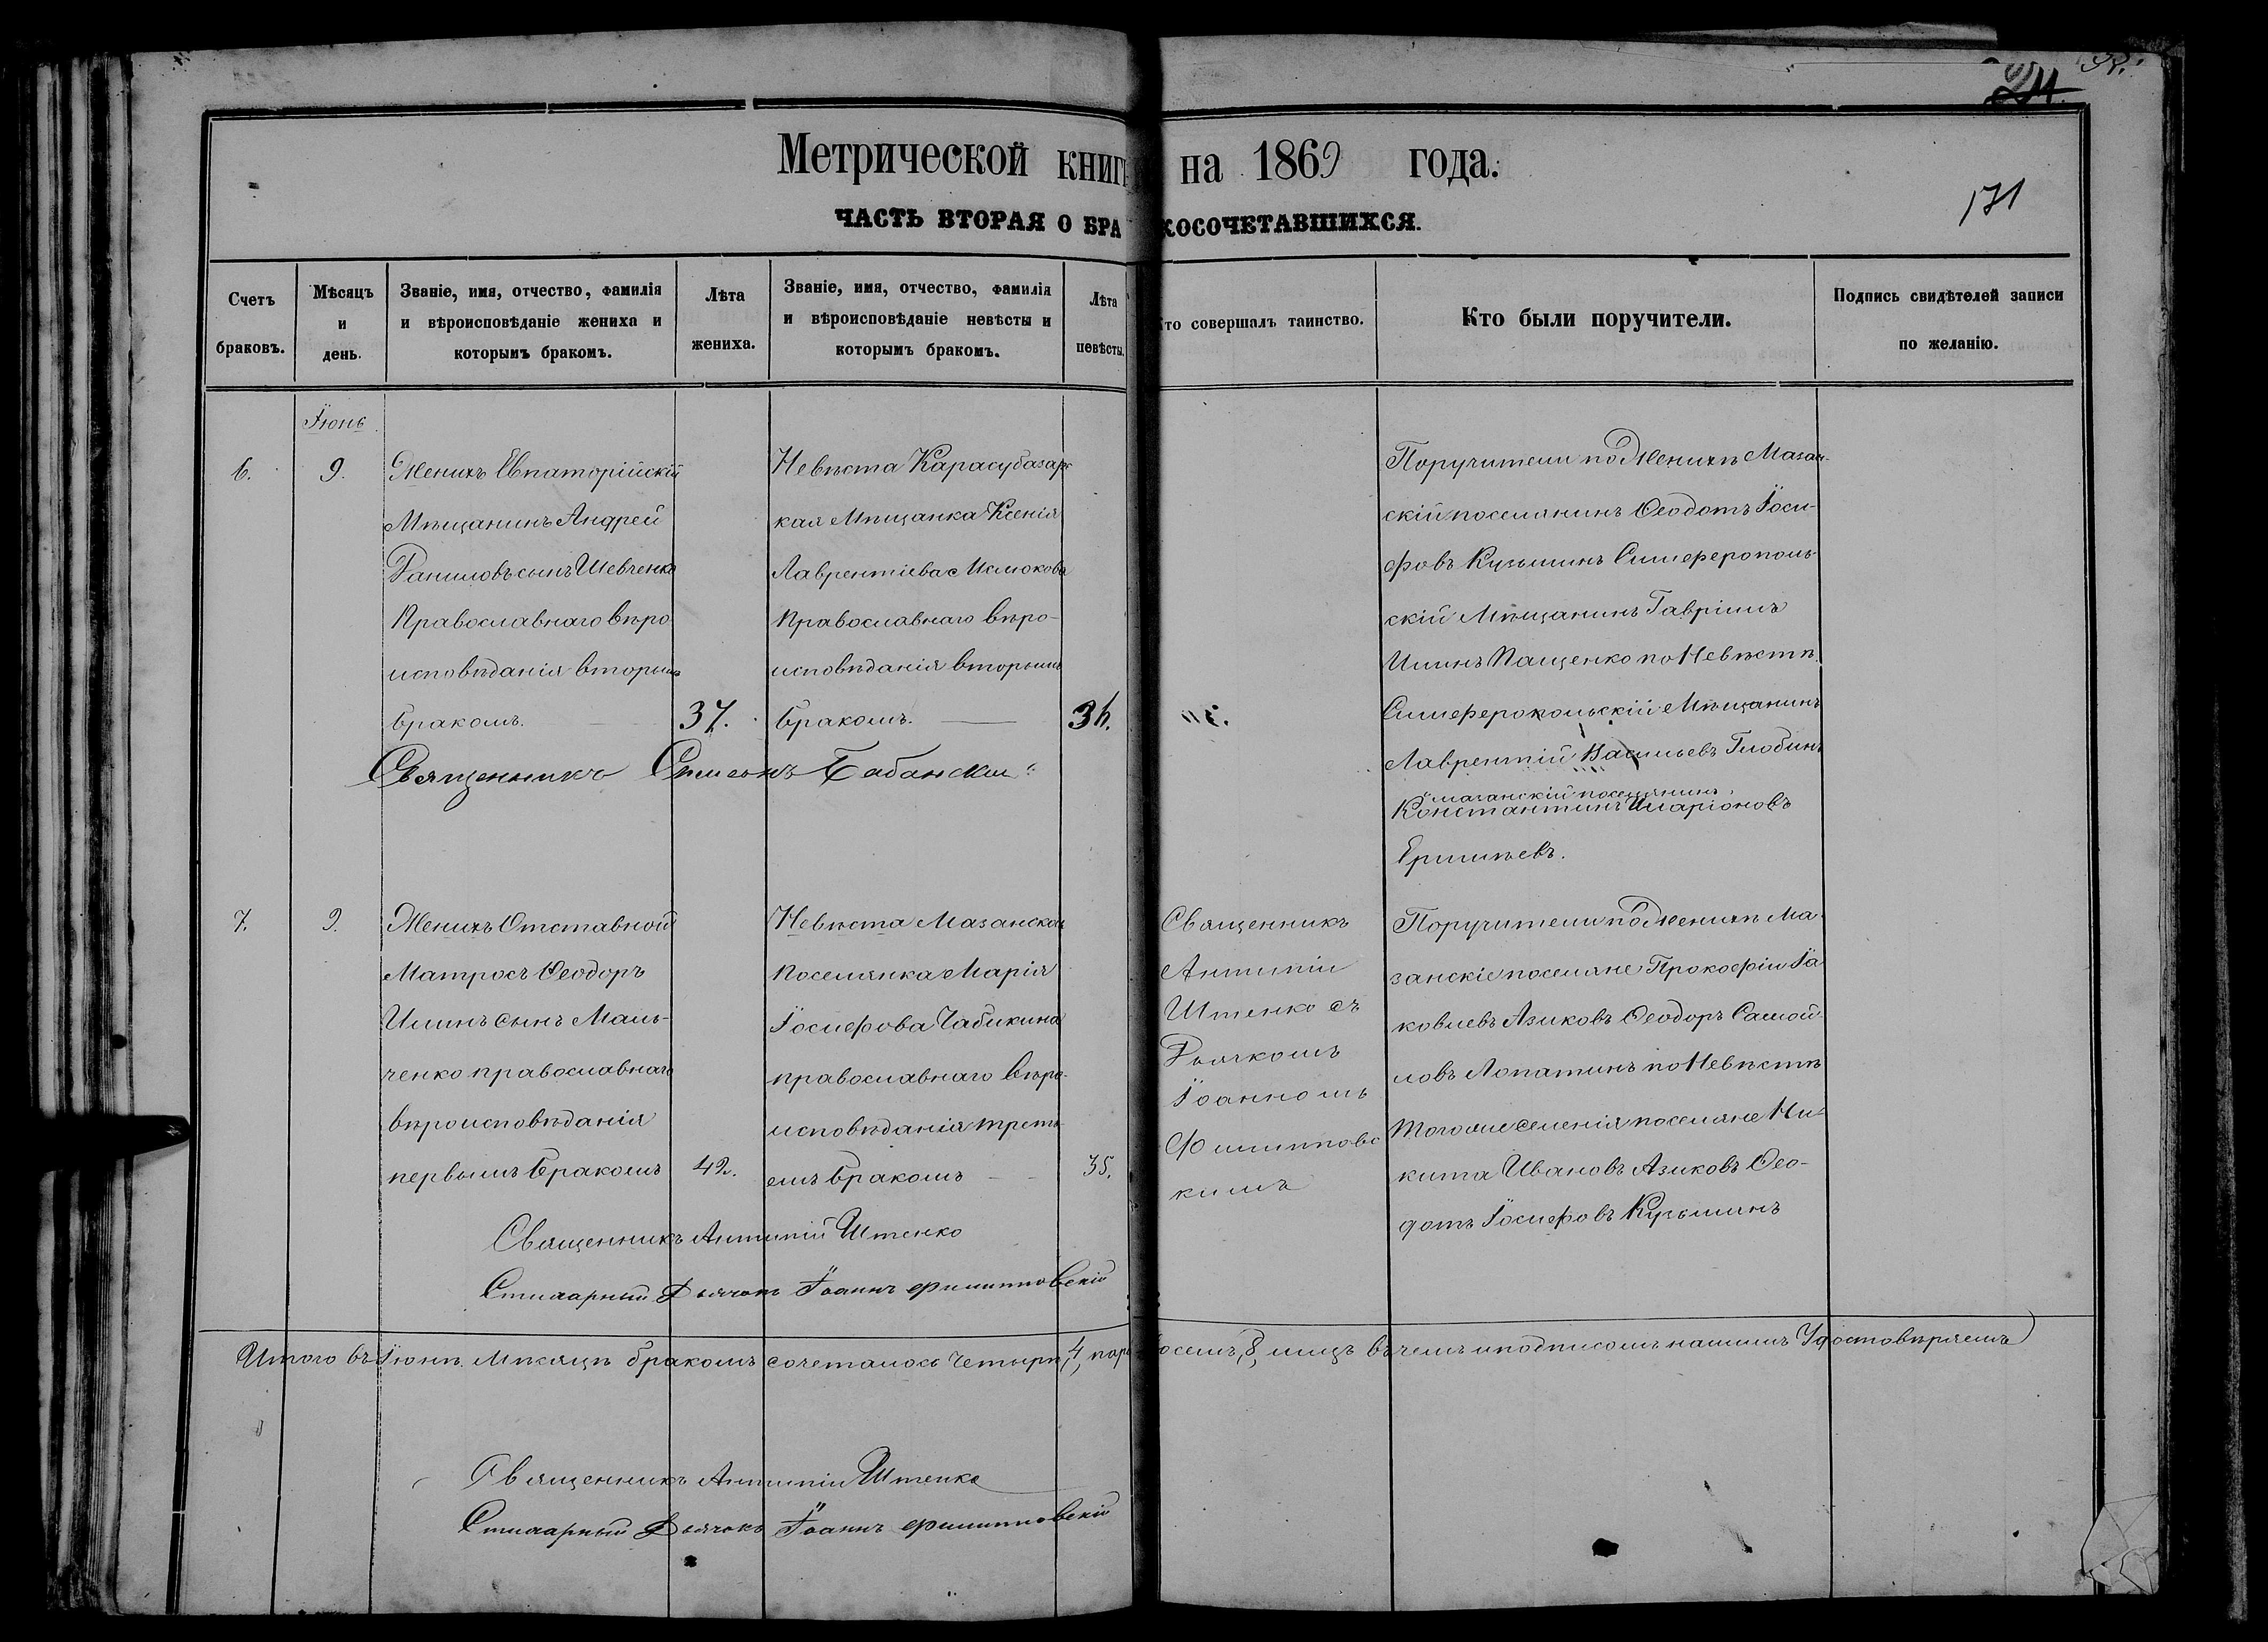 24.
171
Метрической книг на 1869 года.
ЧАСТЬ ВТОРАЯ О БРАКОСОЧЕТАВШИХСЯ.
Счетъ
браковъ.
Мѣсяцъ
и
день.
Званіе, имя, отчество, фамилія
и вѣроисповѣданіе жениха и
которымъ бракомъ.
Лѣта
жениха.
Званіе, имя, отчество, фамилія
и вѣроисповѣданіе невѣсты и
которымъ бракомъ.
Лѣта
невѣсты.
то совершалъ таинство.
Кто были поручители.
Подпись свидѣтелей записи
по желанію.
Іюнь
6.
9.
Женихъ Евпаторійскій
Мѣщанинъ Андрей
Даниловъ сынъ Шевченко
Православнаго вѣро
исповѣданія вторымъ
бракомъ.
37.
Невѣста Карасубазарс
кая Мѣщанка Ксенія
Лаврентіева
Православнаго вѣро-
исповѣданія вторымъ
бракомъ.
Поручители по Женихѣ Мазан-
скій поселянинъ Ѳеодотъ Іоси-
фовъ Кузьминъ Симферополь
скій Мѣщанинъ Гавріилъ
Илинъ Пащенко по Невѣстѣ
Симферопольскій Мѣщанинъ
Лаврентій Васильевъ Глобинъ
мазанскій поселянинъ
Константинъ Иларіоновъ
Священникъ Симеонъ
7.
9.
Женихъ Отставной
Матросъ Ѳеодоръ
Илинъ сынъ Маль-
ченко православнаго
вѣроисповѣданія
первымъ бракомъ
42.
Невѣста Мазанская
поселянка Марія
Іосифова Чабикина
православнаго вѣро-
исповѣданія треть
емъ бракомъ
35.
Священникъ
Антипій
Штенко съ
Дьячкомъ
Іоанномъ
Филипповс
кимъ
Поручители по Женихѣ Ма-
занскіе поселяне Прокофій Іа
ковлевъ Азиковъ Ѳеодоръ Самой-
ловъ Лопатинъ по Невѣстѣ
Тогоже селенія поселяне Ни-
кита Ивановъ Азиковъ Ѳео-
дотъ Іосифовъ Кузьминъ
Священникъ Антипій Штенко
Стихарный Дьячокъ Іоаннъ Филипповскій
Итого въ Іюнѣ Мѣсяцѣ бракомъ сочеталось Четыре, 4, пар осемь, 8, лицъ въ чемъ и подписомъ нашимъ Удостовѣряемъ
Священникъ Антипій Штенко
Стихарный Дьячокъ Іоаннъ Филипповскій